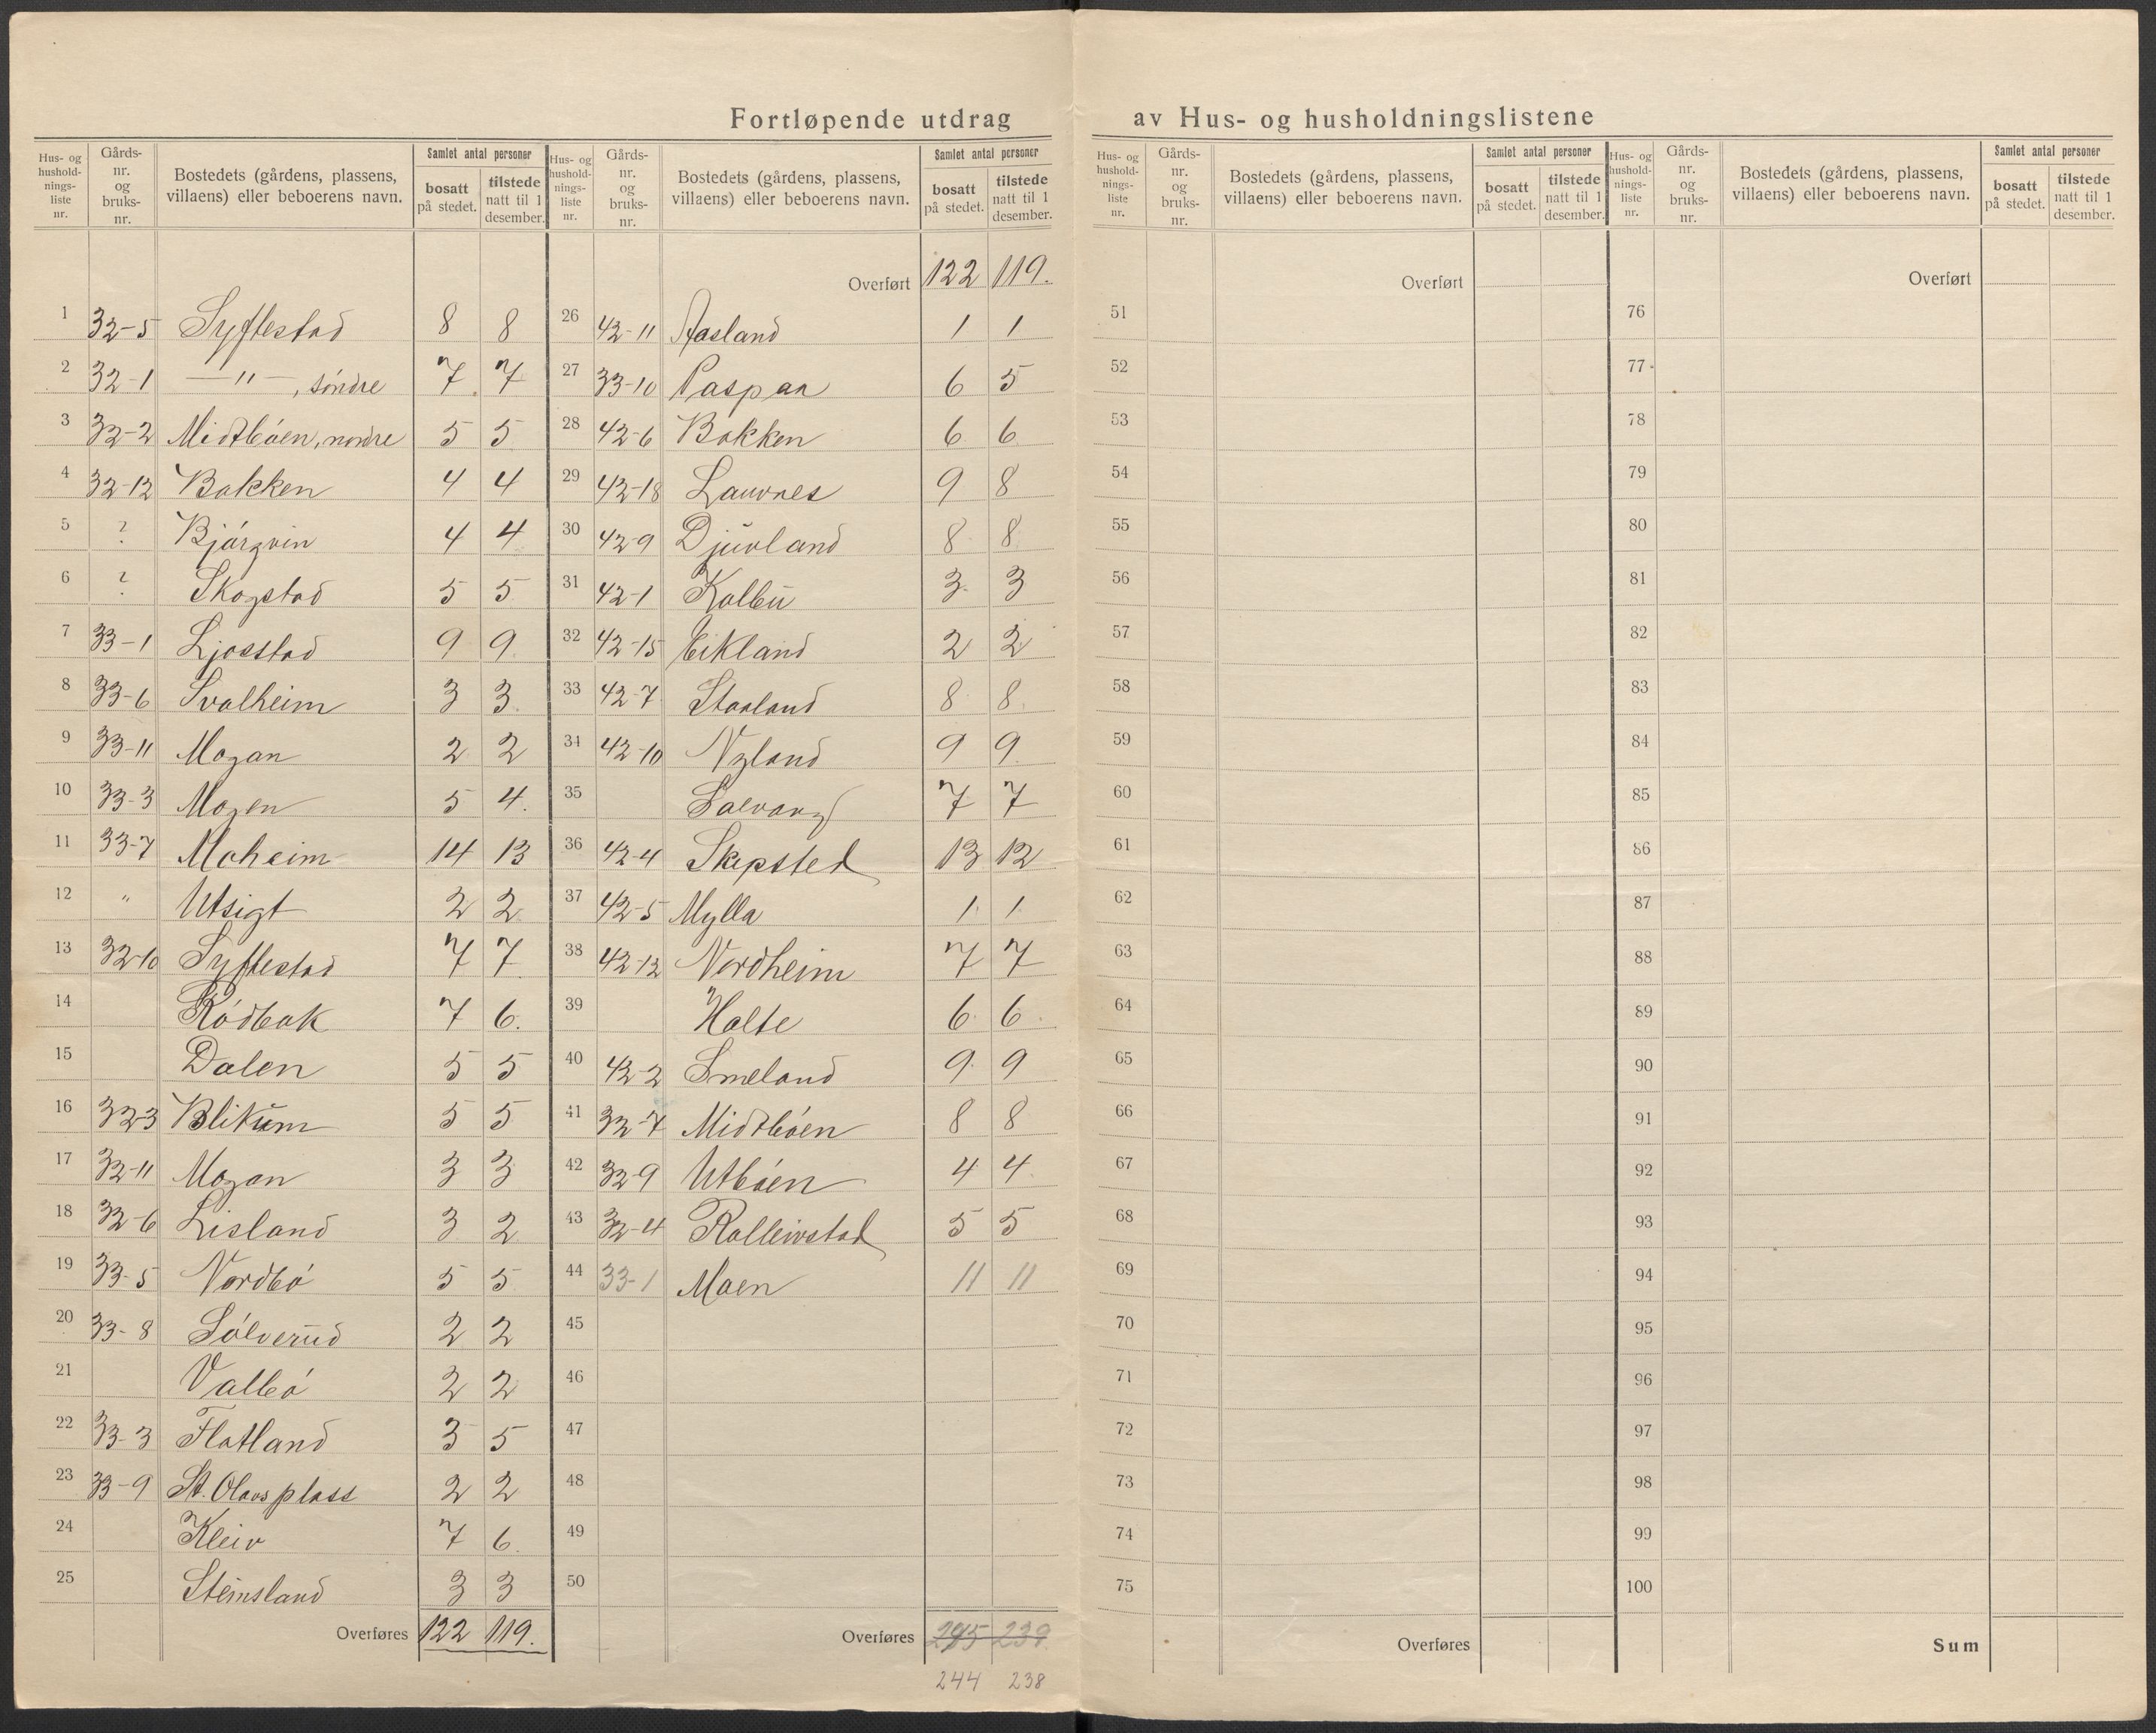 Fortløpende utdrag av Hus- og husholdningslistene
Hus- og hushold-nings-liste nr. Gårds-nr. og bruks-nr. Bostedets (gårdens, plassens, villaens) eller beboerens navn. Samlet antal personer bosatt på stedet. tilstede natt til 1 desember.
1 32-5 Syftestad 8 8
2 32-1 —"—, söndre 7 7
3 32-2 Midtböen, nordre 5 5
4 32-12 Bakken 4 4
5 ? Bjórgvin 4 4
6 ? Skogstad 5 5
7 33-1 Ljosstad 9 9
8 33-6 Svalheim 3 3
9 33-11 Mogan 2 2
10 33-3 Mogen 5 4.
11 33-7 Moheim 14 13
12 " Utsigt 2 2
13 32-10 Syftestad 7 7
14 Ródbak 7 6.
15 Dalen 5 5
16 32-3 Blikum 5 5
17 32-11 Mogan 3 3
18 32-6 Lisland 3 2
19 33-5 Nordbó 5 5
20 33-8 Sólverud 2 2
21 Valbó 2 2
22 33-3 Flatland 3 5
23 33-9 St. Olavs plass 2 2
24 Kleiv 7 6.
25 Steinsland 3 3
Overføres 122 119.
Hus- og hushold-nings-liste nr. Gårds-nr. og bruks-nr. Bostedets (gårdens, plassens, villaens) eller beboerens navn. Samlet antal personer bosatt på stedet. tilstede natt til 1 desember.
Overført 122 119.
26 42-11 Aasland 1 1
27 33-10 Paspaa 6 5
28 42-6 Bakken 6 6
29 42-18 Lauvnes 9 8
30 42-9 Djuvland 8 8
31 42-1 Kalbu 3 3
32 42-15 Eikland 2 2
33 42-7 Staaland 8 8
34 42-10 Nyland 9 9
35 Solvang 7 7
36 42-4 Skepsted 13 12
37 42-5 Mylla 1 1
38 42-12 Nordheim 7 7
39 Holte 6 6
40 42-2 Smeland 9 9
41 32-7 Midtbóen 8 8
42 32-9 Utbóen 4 4
43 32-4 Rolleivstad 5 5
44 33-1 Moen 11 11
45
46
47
48
49
50
Overføres 245 239
244 238
Hus- og hushold-nings-liste nr. Gårds-nr. og bruks-nr. Bostedets (gårdens, plassens, villaens) eller beboerens navn. Samlet antal personer bosatt på stedet. tilstede natt til 1 desember.
Overført
51
52
53
54
55
56
57
58
59
60
61
62
63
64
65
66
67
68
69
70
71
72
73
74
75
Overføres
Hus- og hushold-nings-liste nr. Gårds-nr. og bruks-nr. Bostedets (gårdens, plassens, villaens) eller beboerens navn. Samlet antal personer bosatt på stedet. tilstede natt til 1 desember.
Overført
76
77
78
79
80
81
82
83
84
85
86
87
88
89
90
91
92
93
94
95
96
97
98
99
100
Sum